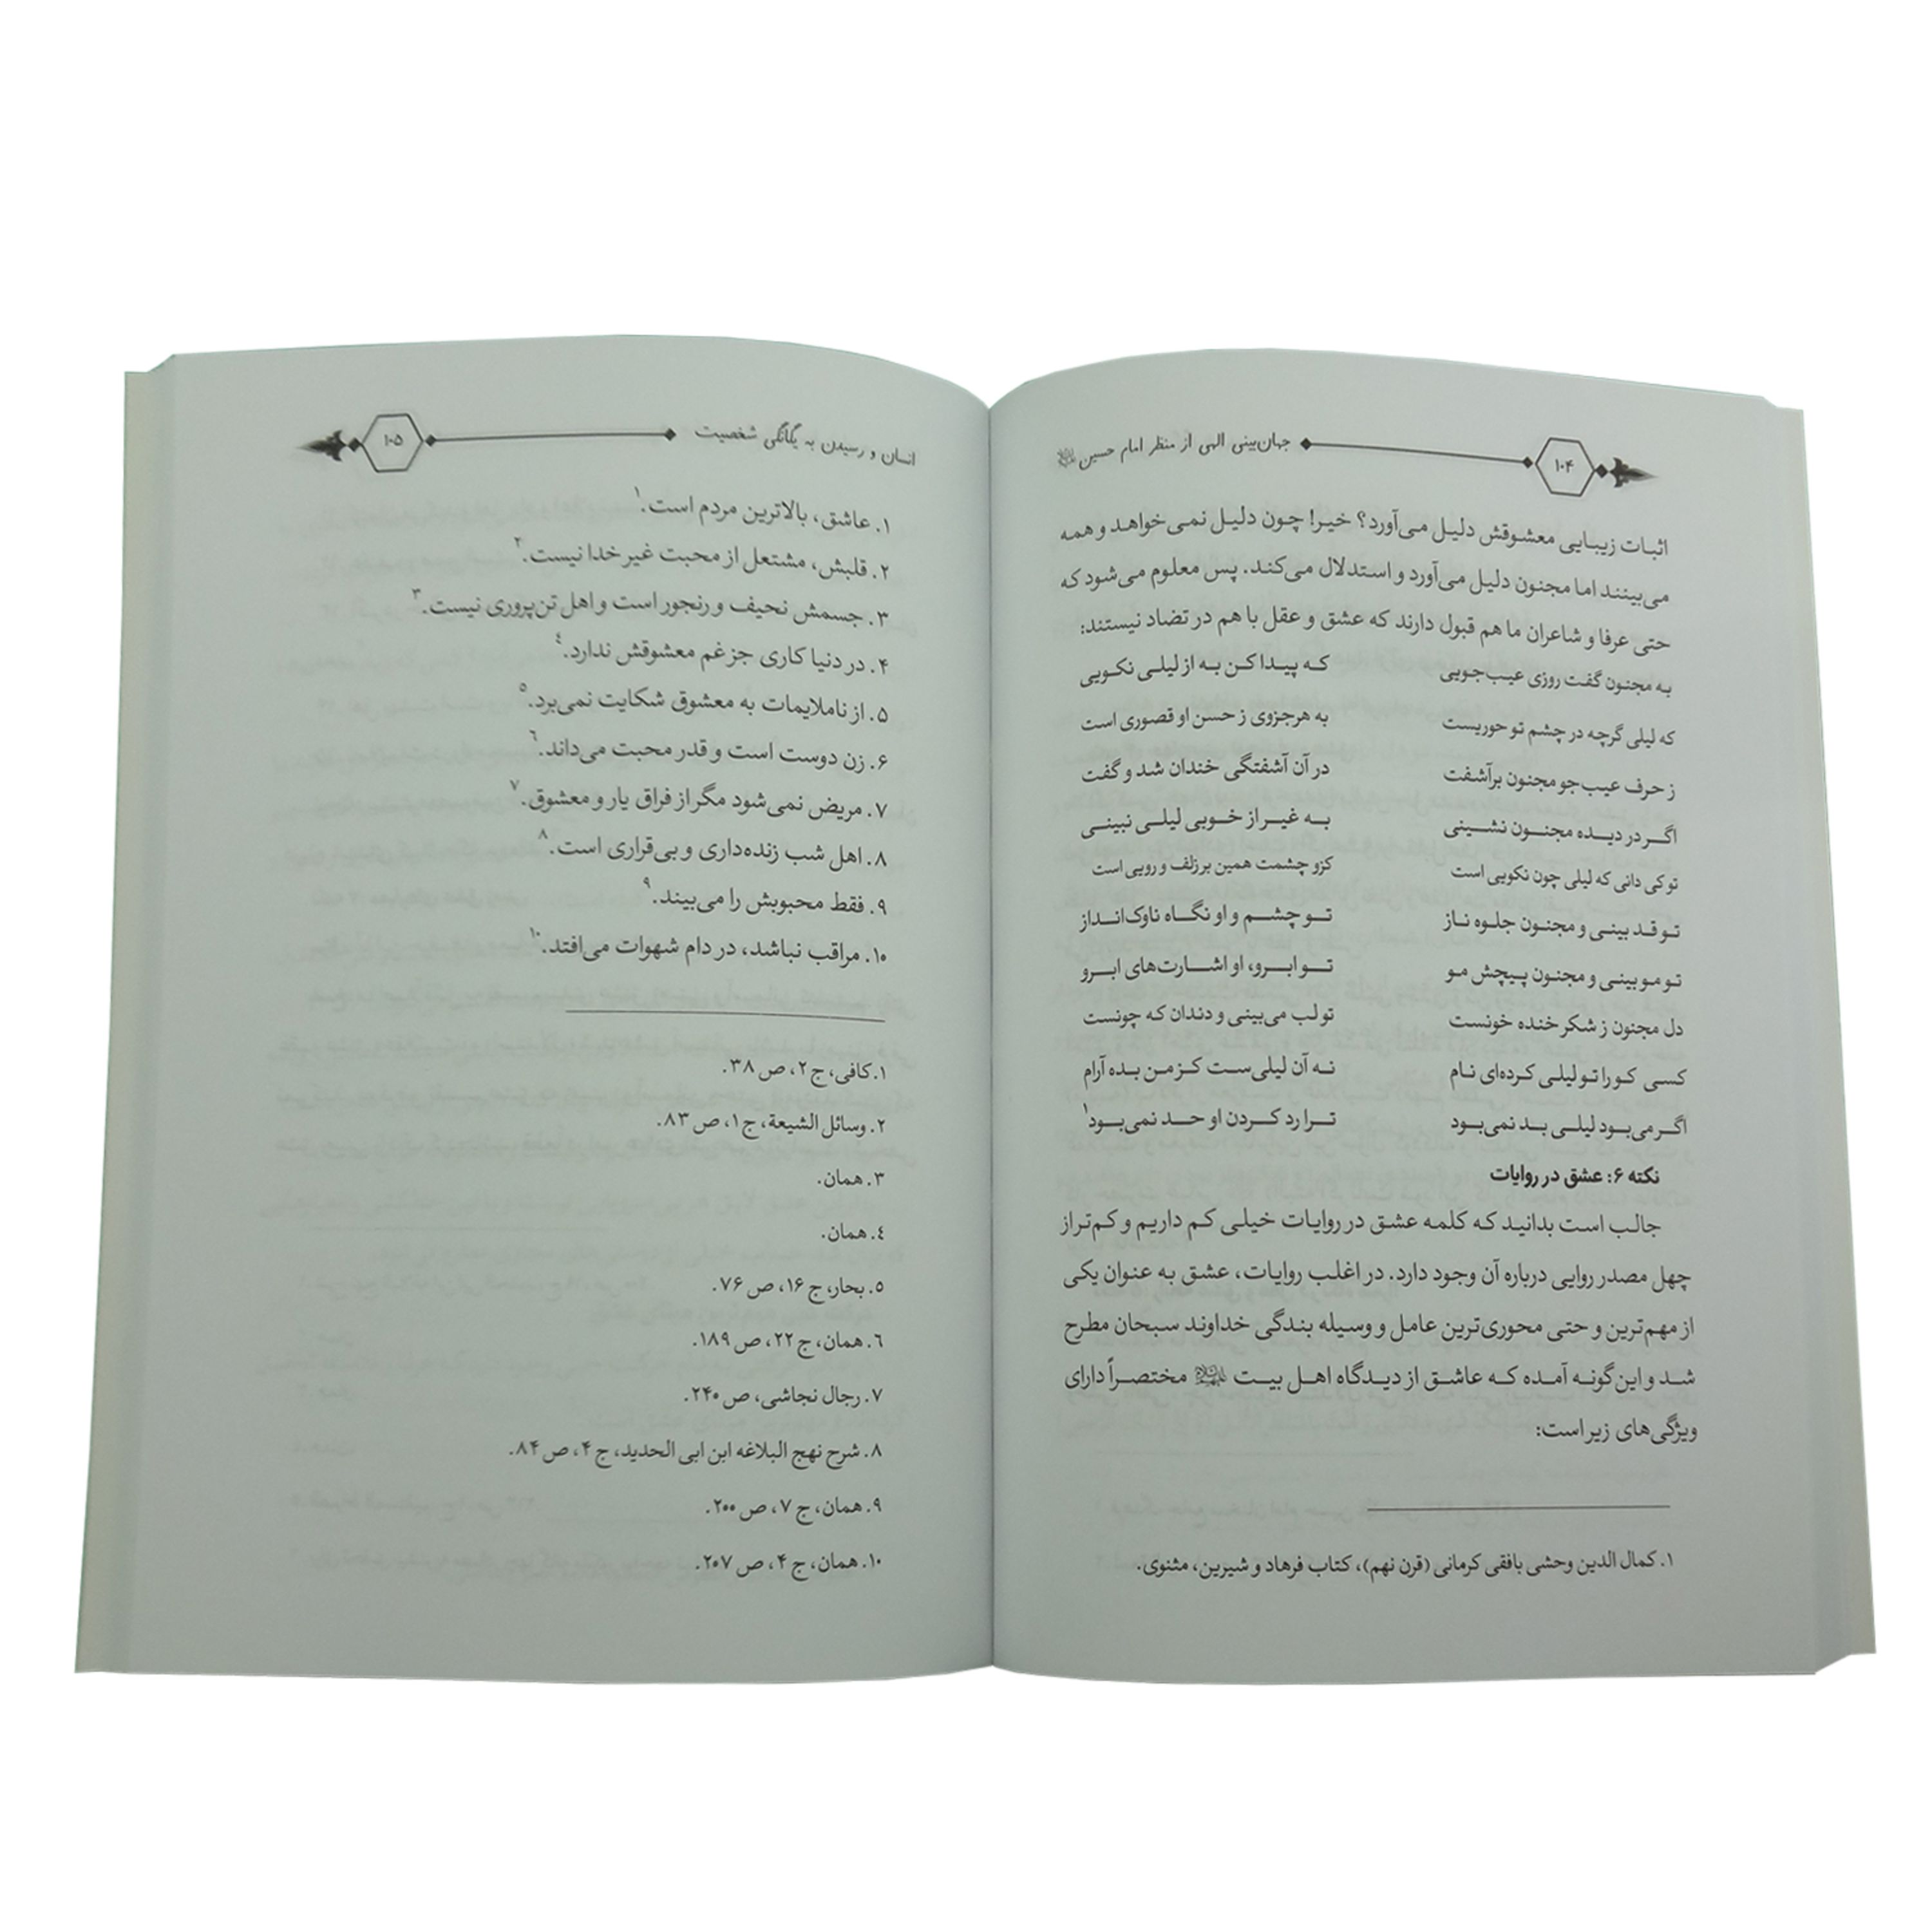 ۱۰۴
جهان‌بینی الهی از منظر امام حسین
اثبات زیبایی معشوقش دلیل می‌آورد؟ خیر! چون دلیل نمی‌خواهد و همه
می‌بینند اما مجنون دلیل می‌آورد و استدلال می‌کند. پس معلوم می‌شود که
حتی عرفا و شاعران ما هم قبول دارند که عشق و عقل با هم در تضاد نیستند:
به مجنون گفت روزی عیب‌جویی که پیدا کن به از لیلی نکویی
که لیلی گرچه در چشم تو حوریست به هر جزوی ز حسن او قصوری است
ز حرف عیب‌جو مجنون برآشفت در آن آشفتگی خندان شد و گفت
اگر در دیده مجنون نشینی به غیر از خوبی لیلی نبینی
تو کی دانی که لیلی چون نکویی است کزو چشمت همین بر زلف و رویی است
تو قد بینی و مجنون جلوه ناز تو چشم و او نگاه ناوک‌انداز
تو مو بینی و مجنون پیچش مو تو ابرو، او اشارت‌های ابرو
دل مجنون ز شکر خنده خونست تو لب می‌بینی و دندان که چونست
کسی کو را تو لیلی کرده‌ای نام نه آن لیلی‌ست کز من بده آرام
اگر می‌بود لیلی بد نمی‌بود ترا رد کردن او حد نمی‌بود۱
نکته ۶: عشق در روایات
جالب است بدانید که کلمه عشق در روایات خیلی کم داریم و کم‌تر از
چهل مصدر روایی درباره آن وجود دارد. در اغلب روایات، عشق به عنوان یکی
از مهم‌ترین و حتی محوری‌ترین عامل و وسیله بندگی خداوند سبحان مطرح
شد و این‌گونه آمده که عاشق از دیدگاه اهل بیت مختصراً دارای
ویژگی‌های زیر است:
۱. کمال الدین وحشی بافقی کرمانی (قرن نهم)، کتاب فرهاد و شیرین، مثنوی.
انسان و رسیدن به یگانگی شخصیت
۱۰۵
۱. عاشق، بالاترین مردم است.۱
۲. قلبش، مشتعل از محبت غیر خدا نیست.۲
۳. جسمش نحیف و رنجور است و اهل تن‌پروری نیست.۳
۴. در دنیا کاری جز غم معشوقش ندارد.٤
۵. از ناملایمات به معشوق شکایت نمی‌برد.۵
۶. زن دوست است و قدر محبت می‌داند.٦
۷. مریض نمی‌شود مگر از فراق یار و معشوق.۷
۸. اهل شب زنده‌داری و بی‌قراری است.۸
۹. فقط محبوبش را می‌بیند.۹
۱۰. مراقب نباشد، در دام شهوات می‌افتد.۱۰
۱. کافی، ج ۲، ص ۳۸.
۲. وسائل الشیعة، ج ۱، ص ۸۳.
۳. همان.
٤. همان.
۵. بحار، ج ۱۶، ص ۷۶.
٦. همان، ج ۲۲، ص ۱۸۹.
۷. رجال نجاشی، ص ۲۴۰.
۸. شرح نهج البلاغه ابن ابی الحدید، ج ۴، ص ۸۴.
۹. همان، ج ۷، ص ۲۰۰.
۱۰. همان، ج ۴، ص ۲۰۷.